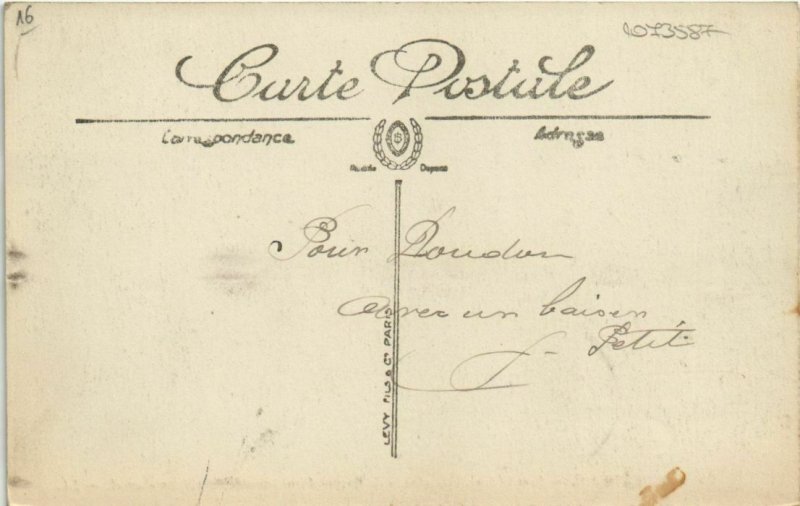 16
1073587
Carte Postale
Correspondance
Adresse
Modèle Déposé
Pour Doudou
avec un baiser
J. Petit
LEVY FILS & Cie PARIS